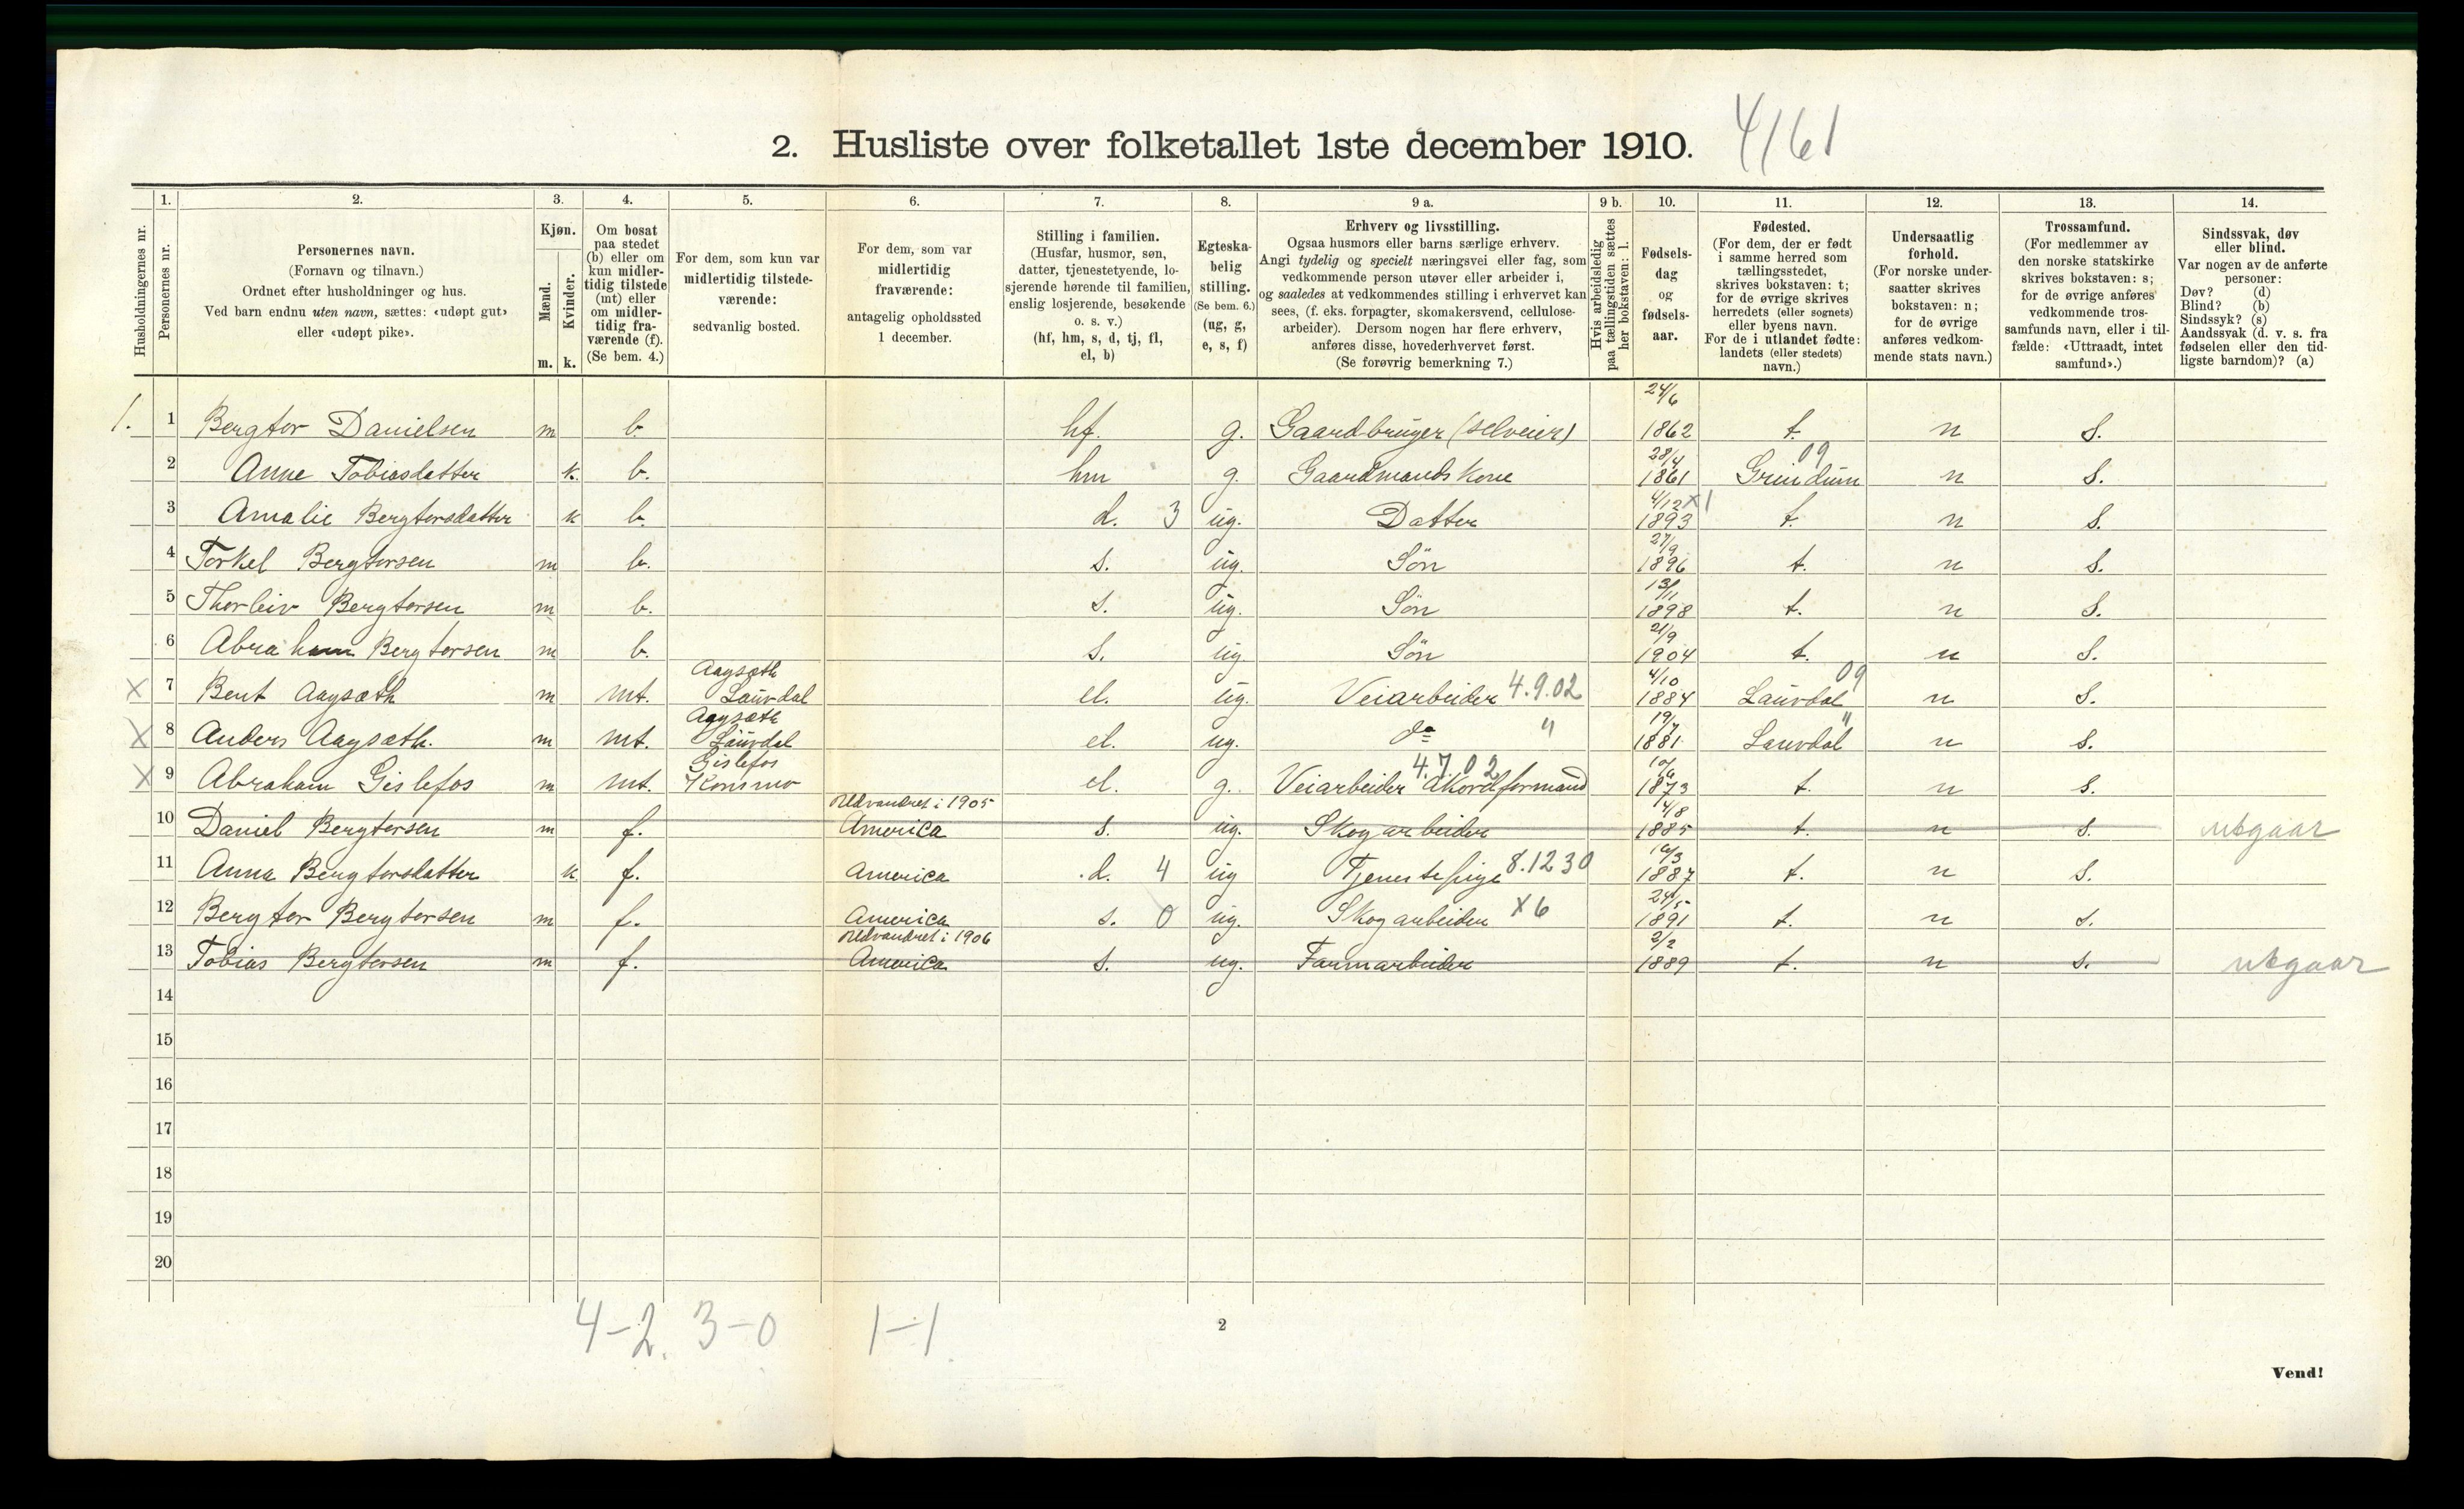 2. Husliste over folketallet 1ste december 1910. 4161
Husholdningernes nr.
1. Personernes nr.
2. Personernes navn. (Fornavn og tilnavn.) Ordnet efter husholdninger og hus. Ved barn endnu uten navn, sættes: «udøpt gut» eller «udøpt pike».
3. Kjøn. Mænd. m. Kvinder. k.
4. Om bosat paa stedet (b) eller om kun midlertidig tilstede (mt) eller om midlertidig fraværende (f). (Se bem. 4.)
5. For dem, som kun var midlertidig tilstedeværende: sedvanlig bosted.
6. For dem, som var midlertidig fraværende: antagelig opholdssted 1 december.
7. Stilling i familien. (Husfar, husmor, søn, datter, tjenestetyende, losjerende hørende til familien, enslig losjerende, besøkende o. s. v.) (hf, hm, s, d, tj, fl, el, b)
8. Egteskabelig stilling. (Se bem. 6.) (ug, g, e, s, f)
9 a. Erhverv og livsstilling. Ogsaa husmors eller barns særlige erhverv. Angi tydelig og specielt næringsvei eller fag, som vedkommende person utøver eller arbeider i, og saaledes at vedkommendes stilling i erhvervet kan sees, (f. eks. forpagter, skomakersvend, cellulosearbeider). Dersom nogen har flere erhverv, anføres disse, hovederhvervet først. (Se forøvrig bemerkning 7.)
9 b. Hvis arbeidsledig paa tællingstiden sættes her bokstaven: l.
10. Fødselsdag og fødselsaar.
11. Fødested. (For dem, der er født i samme herred som tællingsstedet, skrives bokstaven: t; for de øvrige skrives herredets (eller sognets) eller byens navn. For de i utlandet fødte: landets (eller stedets) navn.)
12. Undersaatlig forhold. (For norske undersaatter skrives bokstaven: n; for de øvrige anføres vedkommende stats navn.)
13. Trossamfund. (For medlemmer av den norske statskirke skrives bokstaven: s; for de øvrige anføres vedkommende trossamfunds navn, eller i tilfælde: «Uttraadt, intet samfund».)
14. Sindssvak, døv eller blind. Var nogen av de anførte personer: Døv? (d) Blind? (b) Sindssyk? (s) Aandssvak (d. v. s. fra fødselen eller den tidligste barndom)? (a)
1. 1 Bergtor Danielsen m b. hf. g. Gaardbruger (selveier) 24/6 1862 t. n s.
2 Anne Tobiasdatter k. b. hm g. Gaardmandskone 28/4 1861 Grindum 09 n s.
3 Amalie Bergtorsdatter k b. d. 3 ug. Datter 4/12 1893 x1 t. n s.
4 Torkel Bergtorsen m b. s. ug. Søn 27/9 1896 t. n s.
5 Thorleiv Bergtorsen m b. s. ug. Søn 13/11 1898 t. n s.
6 Abraham Bergtorsen m b. s. ug. Søn 21/9 1904 t. n s.
X 7 Bent Aagsæth m mt. Aagsæth Lauvdal el. ug. Veiarbeider 4.9.02 4/10 1884 Lauvdal 09 n s.
X 8 Anders Aagsæth. m mt. Aagsæth Lauvdal el. ug. do " 19/7 1881 Lauvdal " n s.
X 9 Abraham Gislefos m mt. Gislefos Konsmo el. g. Veiarbeider Akordformand 4.7.02 1873 t. n s.
10 Daniel Bergtorsen m f. Udvandret i 1905 America s. ug. Skogarbeider 14/8 1885 t. n s. utgaar
11 Anna Bergtorsdatter k f. America d. 4 ug Tjenestepige 8.1230 16/3 1887 t. n s.
12 Bergtor Bergtorsen m f. America s. 0 ug. Skogarbeider X6 24/5 1891 t. n s.
13 Tobias Bergtorsen m f. Udvandret i 1906 America s. ug. Farmarbeider 2/2 1889 t. n s. utgaar
14
15
16
17
18
19
20
4-2. 3-0 1-1.
2
Vend!